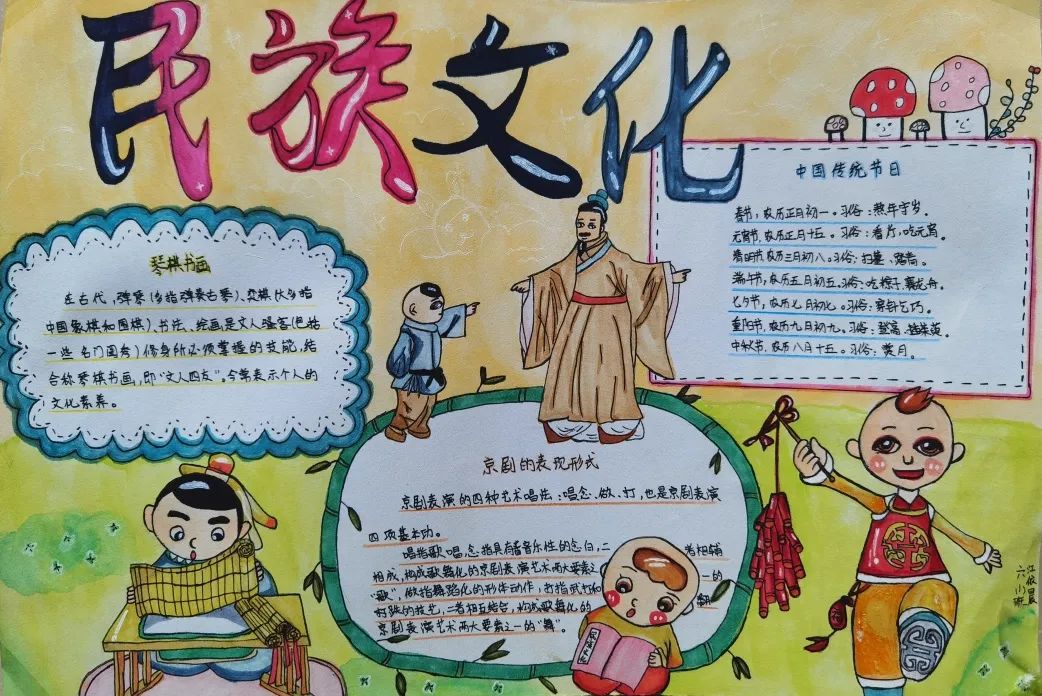 民族文化
琴棋书画
在古代，弹琴（多指弹奏古琴）、弈棋（大多指
中国象棋和围棋）、书法、绘画是文人骚客（包括
一些名门闺秀）修身所必须掌握的技能，结
合称琴棋书画，即“文人四友”。今常表示个人的
文化素养。
中国传统节日
春节，农历正月初一。习俗：熬年守岁。
元宵节，农历正月十五。习俗：看灯，吃元宵。
清明节，农历三月初八。习俗：扫墓、踏青。
端午节，农历五月初五。习俗：吃粽子，赛龙舟。
七夕节，农历七月初七。习俗：穿针乞巧。
重阳节，农历九月初九。习俗：登高，插茱萸。
中秋节，农历八月十五。习俗：赏月。
京剧的表现形式
京剧表演的四种艺术唱法：唱、念、做、打，也是京剧表演
四项基本功。
唱指歌唱，念指具有音乐性的念白，二者相辅
相成，构成歌舞化的京剧表演艺术两大要素之一的
“歌”，做指舞蹈化的形体动作，打指武打和翻
的技艺，二者相互结合，构成歌舞化的
京剧表演艺术两大要素之一的“舞”。
六